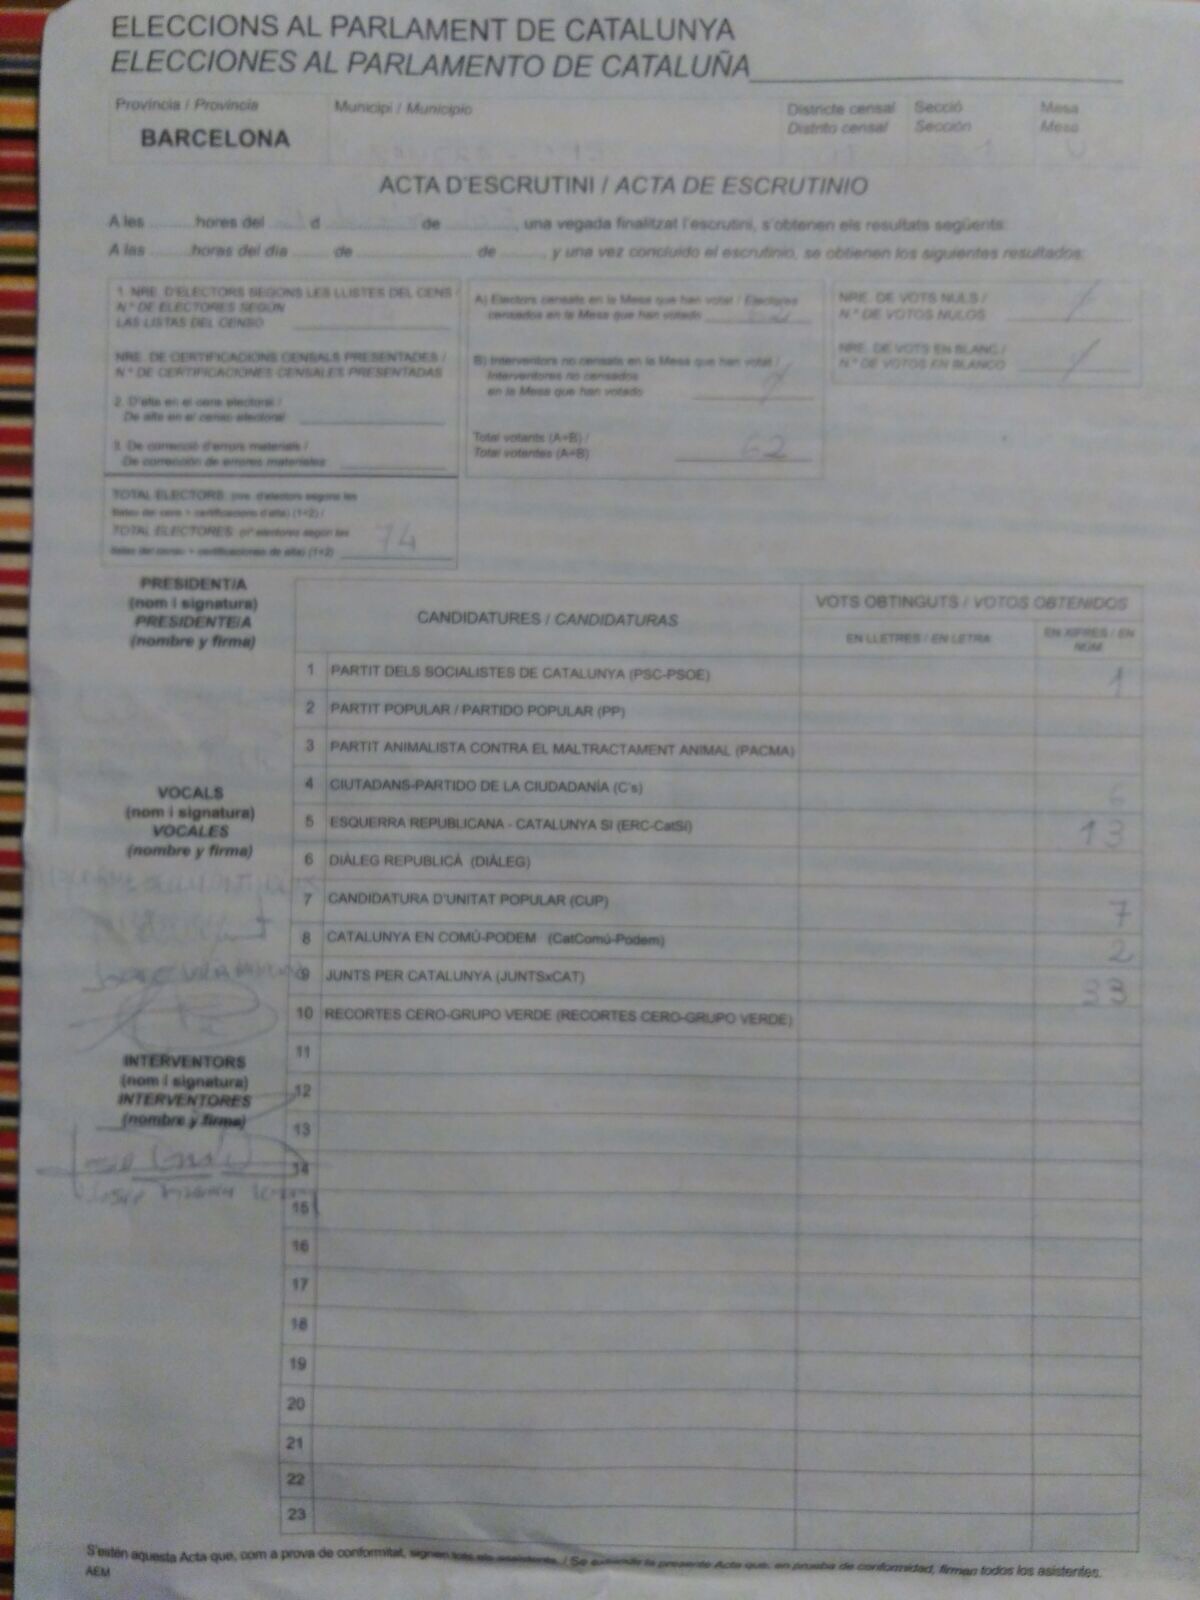 ELECCIONS AL PARLAMENT DE CATALUNYA
ELECCIONES AL PARLAMENTO DE CATALUÑA
Província / Provincia
BARCELONA
Municipi / Municipio
Districte censal
Distrito censal
Secció
Sección
Mesa
Mesa
ACTA D'ESCRUTINI / ACTA DE ESCRUTINIO
A les ........hores del ........ d .................. de ............, una vegada finalitzat l'escrutini, s'obtenen els resultats següents:
A las ........horas del día ...... de .................. de ........, y una vez concluido el escrutinio, se obtienen los siguientes resultados:
1. NRE. D'ELECTORS SEGONS LES LLISTES DEL CENS /
N.º DE ELECTORES SEGÚN
LAS LISTAS DEL CENSO
NRE. DE CERTIFICACIONS CENSALS PRESENTADES /
N.º DE CERTIFICACIONES CENSALES PRESENTADAS
2. D'alta en el cens electoral /
De alta en el censo electoral
3. De correcció d'errors materials /
De corrección de errores materiales
TOTAL ELECTORS: (nre. d'electors segons les
llistes del cens + certificacions d'alta) (1+2) /
TOTAL ELECTORES: (nº electores según las
listas del censo + certificaciones de alta) (1+2) 74
A) Electors censats en la Mesa que han votat / Electores
censados en la Mesa que han votado 62
B) Interventors no censats en la Mesa que han votat /
Interventores no censados
en la Mesa que han votado
Total votants (A+B) /
Total votantes (A+B) 62
NRE. DE VOTS NULS /
N.º DE VOTOS NULOS /
NRE. DE VOTS EN BLANC /
N.º DE VOTOS EN BLANCO /
PRESIDENT/A
(nom i signatura)
PRESIDENTE/A
(nombre y firma)
VOCALS
(nom i signatura)
VOCALES
(nombre y firma)
INTERVENTORS
(nom i signatura)
INTERVENTORES
(nombre y firma)
CANDIDATURES / CANDIDATURAS
VOTS OBTINGUTS / VOTOS OBTENIDOS
EN LLETRES / EN LETRA
EN XIFRES / EN NÚM
1 PARTIT DELS SOCIALISTES DE CATALUNYA (PSC-PSOE) 1
2 PARTIT POPULAR / PARTIDO POPULAR (PP)
3 PARTIT ANIMALISTA CONTRA EL MALTRACTAMENT ANIMAL (PACMA)
4 CIUTADANS-PARTIDO DE LA CIUDADANÍA (C's) 6
5 ESQUERRA REPUBLICANA - CATALUNYA SI (ERC-CatSí) 13
6 DIÀLEG REPUBLICÀ (DIÀLEG)
7 CANDIDATURA D'UNITAT POPULAR (CUP) 7
8 CATALUNYA EN COMÚ-PODEM (CatComú-Podem) 2
9 JUNTS PER CATALUNYA (JUNTSxCAT) 33
10 RECORTES CERO-GRUPO VERDE (RECORTES CERO-GRUPO VERDE)
11
12
13
14
15
16
17
18
19
20
21
22
23
S'estén aquesta Acta que, com a prova de conformitat, signen tots els assistents. / Se extiende la presente Acta que, en prueba de conformidad, firman todos los asistentes.
AEM